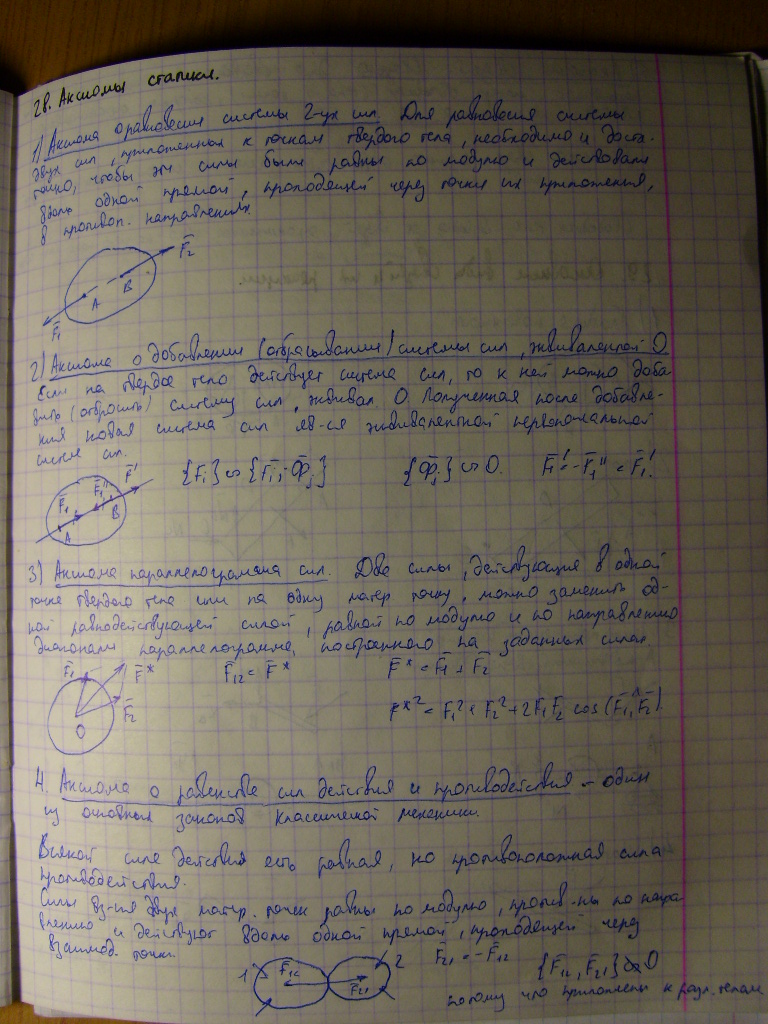 28. Аксиомы статики.
1) Аксиома о равновесии системы 2-ух сил. Для равновесия системы
двух сил, приложенных к точкам твердого тела, необходимо и доста-
точно, чтобы эти силы были равны по модулю и действовали
вдоль одной прямой, проходящей через точки их приложения,
в противоп. направлениях.
F̄₂
A B
F̄₁
2) Аксиома о добавлении (отбрасывании) системы сил, эквивалентной 0
Если на твердое тело действует система сил, то к ней можно доба
вить (отбросить) систему сил, эквивал 0. Полученная после добавле-
ния новая система сил яв-ся эквивалентной первоначальной
системе сил.
{F̄ᵢ} ∾ {F̄ᵢ, Ф̄ⱼ} {Ф̄ⱼ} ∾ 0. F̄₁' = -F̄₁'' = F̄₁.
F̄₁ F̄₁'' F̄'
A B
3) Аксиома параллелограмма сил. Две силы, действующие в одной
точке твердого тела или на одну матер точку, можно заменить од-
ной равнодействующей силой, равной по модулю и по направлению
диагонали параллелограмма, построенного на заданных силах.
F̄₁ F̄* F̄₁₂ = F̄* F̄* = F̄₁ + F̄₂
F̄₂
O
F*² = F₁² + F₂² + 2F₁F₂ cos (F̄₁^F̄₂)
4. Аксиома о равенстве сил действия и противодействия – один
из основных законов классической механики.
Всякой силе действия есть равная, но противоположная сила
противодействия.
Силы вз-ия двух матер. точек равны по модулю, против-ны по напра
влению и действуют вдоль одной прямой, проходящей через
взаимод. точки.
1 F̄₁₂ F̄₂₁ 2 F̄₂₁ = -F̄₁₂ {F̄₁₂, F̄₂₁} ≁ 0
потому что приложены к разл. телам